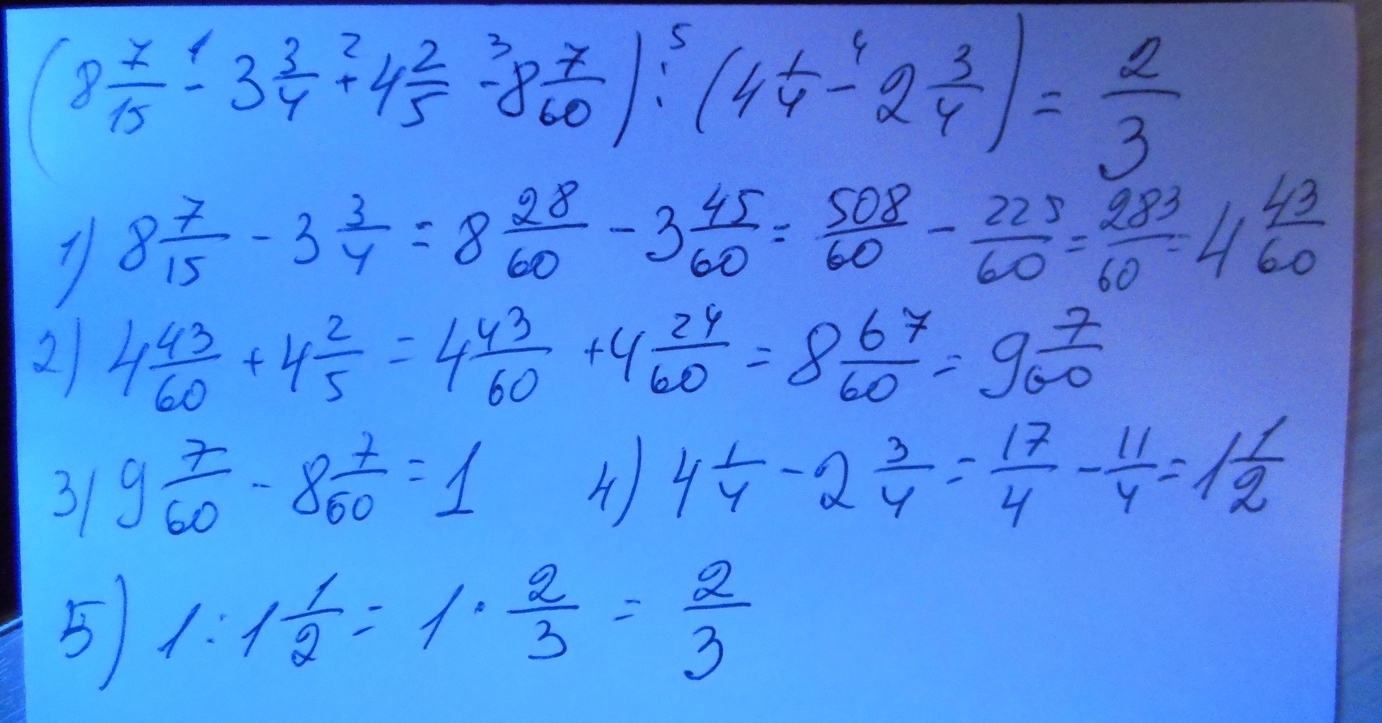 (8 7/15 - 3 3/4 + 4 2/5 - 8 7/60) : (4 1/4 - 2 3/4) = 2/3
1) 8 7/15 - 3 3/4 = 8 28/60 - 3 45/60 = 508/60 - 225/60 = 283/60 = 4 43/60
2) 4 43/60 + 4 2/5 = 4 43/60 + 4 24/60 = 8 67/60 = 9 7/60
3) 9 7/60 - 8 7/60 = 1 4) 4 1/4 - 2 3/4 = 17/4 - 11/4 = 1 1/2
5) 1 : 1 1/2 = 1 · 2/3 = 2/3